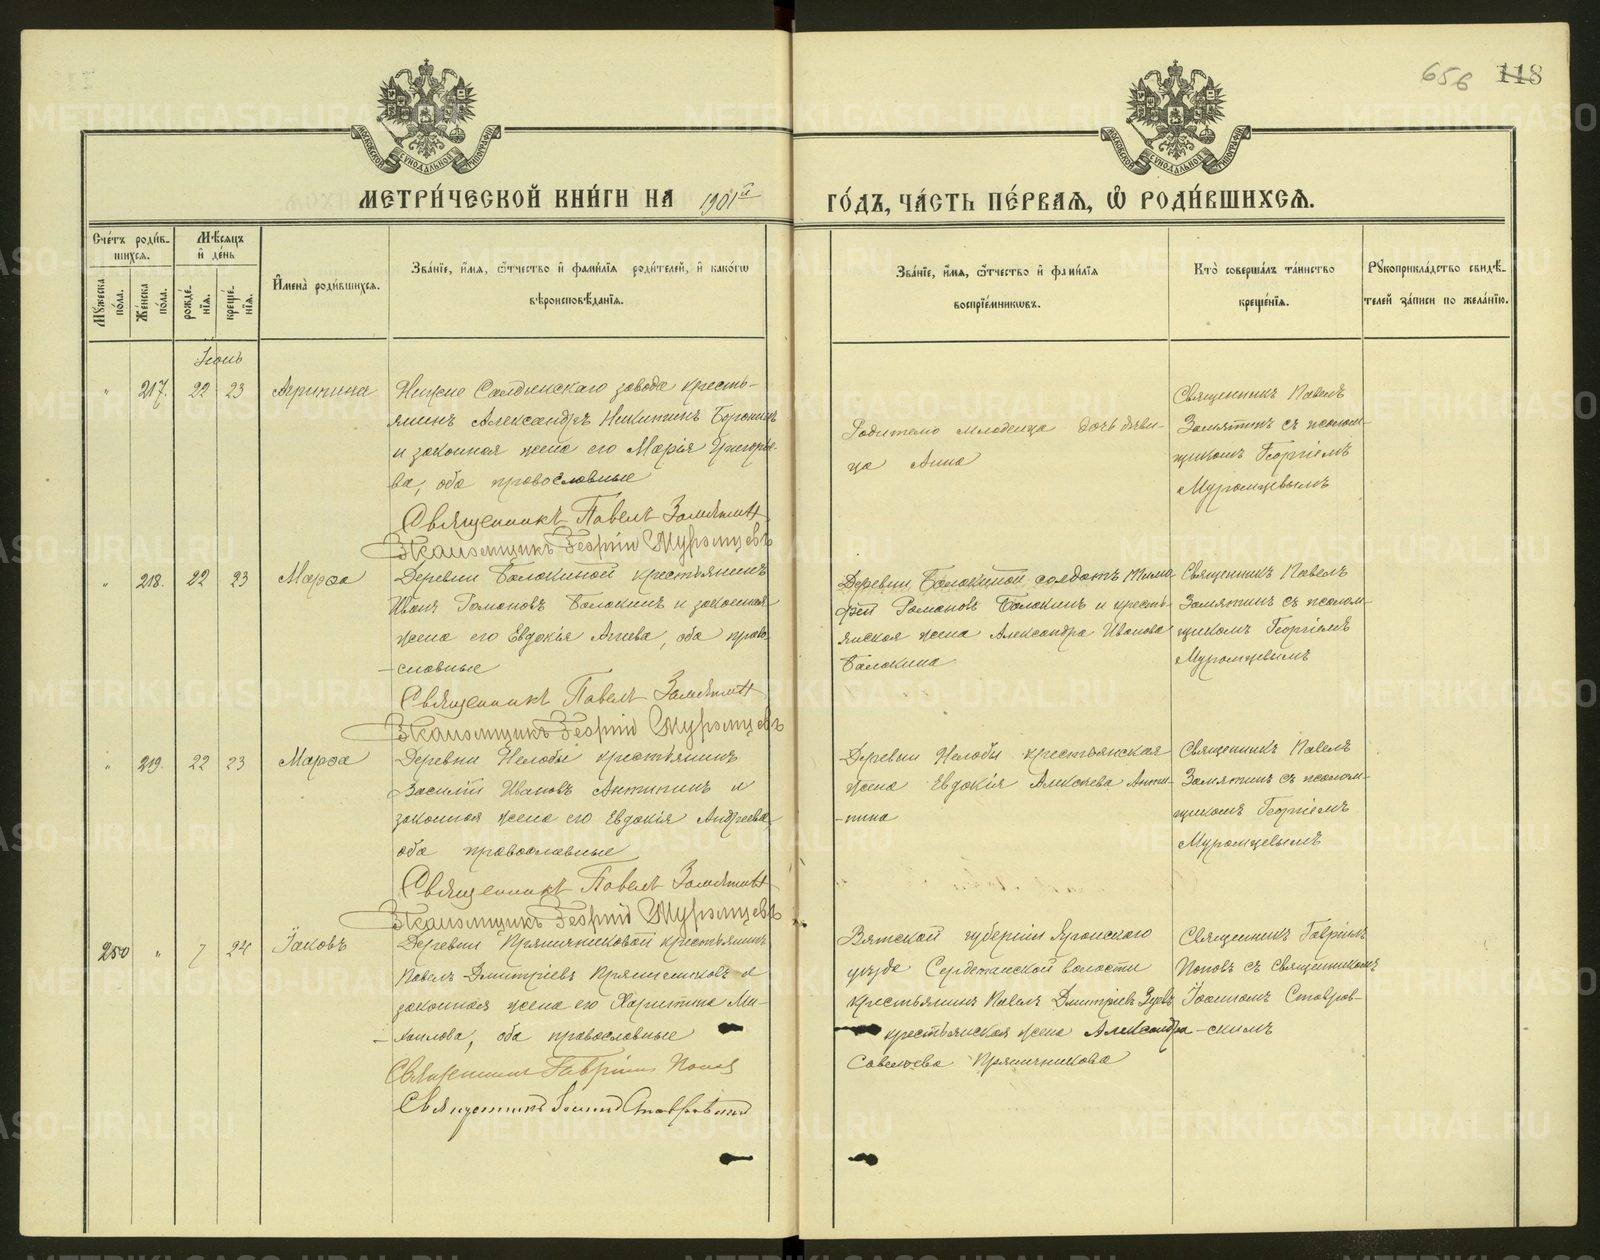 656 118
МЕТРИ́ЧЕСКОЙ КНИ́ГИ НА 1901й ГО́ДЪ, ЧА́СТЬ ПЕ́РВАѦ, Ѽ РОДИ́ВШИХСѦ.
Сче́тъ роди́в-
шихсѧ.
Мꙋжеска по́ла.
Же́нска по́ла.
Мѣ́сѧцъ и де́нь
рожде́нїѧ.
креще́нїѧ.
И҆мена̀ роди́вшихсѧ.
Зва́нїе, и҆́мѧ, ѻ҆́тчество и҆ фами́лїѧ роди́телей, и҆ како́гѡ
вѣроисповѣ́данїѧ.
Зва́нїе, и҆́мѧ, ѻ҆́тчество и҆ фами́лїѧ
воспрїе́мникѡвъ.
Кто̀ соверша́лъ та́инство
креще́нїѧ.
Рꙋкоприкла́дство свидѣ́-
телей за́писи по жела́нїю.
Іюнь
" 217. 22 23
Нижне Салдинскаго завода кресть-
янинъ Александръ Никитинъ
и законная жена его Марія Григорье-
ва, оба православные
Священникъ Павелъ Замятинъ
Псаломщикъ Георгій Муромцевъ
Родителю младенца дочь дѣви-
ца Анна
Священникъ Павелъ
Замятинъ съ псалом-
щикомъ Георгіемъ
Муромцевымъ
" 218. 22 23 Марѳа
Деревни Балакиной крестьянинъ
Иванъ Романовъ Балакинъ и законная
жена его Евдокія, оба право-
-славные
Священникъ Павелъ Замятинъ
Псаломщикъ Георгій Муромцевъ
Деревни Балакиной солдатъ Тимо-
фей Романовъ Балакинъ и кресть-
янская жена Александра Иванова
Балакина
Священникъ Павелъ
Замятинъ съ псалом-
щикомъ Георгіемъ
Муромцевымъ
" 219. 22 23 Марѳа
Деревни Нелобы крестьянинъ
Василій Ивановъ Антипинъ и
законная жена его Евдокія Андреева,
оба православные
Священникъ Павелъ Замятинъ
Псаломщикъ Георгій Муромцевъ
Деревни Нелобы крестьянская
жена Евдокія Алексѣева Анти-
-пина
Священникъ Павелъ
Замятинъ съ псалом-
щикомъ Георгіемъ
Муромцевымъ
250 " 7 24 Іаковъ
Деревни Пряничниковой крестьянинъ
Павелъ Дмитріевъ Пряничниковъ и
законная жена его Харитина Ми-
-хаилова, оба православные
Священникъ Гавріилъ Поповъ
Священникъ Іоаннъ Ставровскій
Вятской губерніи Яранскаго
уѣзда Сердежской волости
крестьянинъ Павелъ Дмитріевъ
крестьянская жена Александра
Савельева Пряничникова
Священникъ Гавріилъ
Поповъ съ Священникомъ
Іоанномъ Ставров-
-скимъ